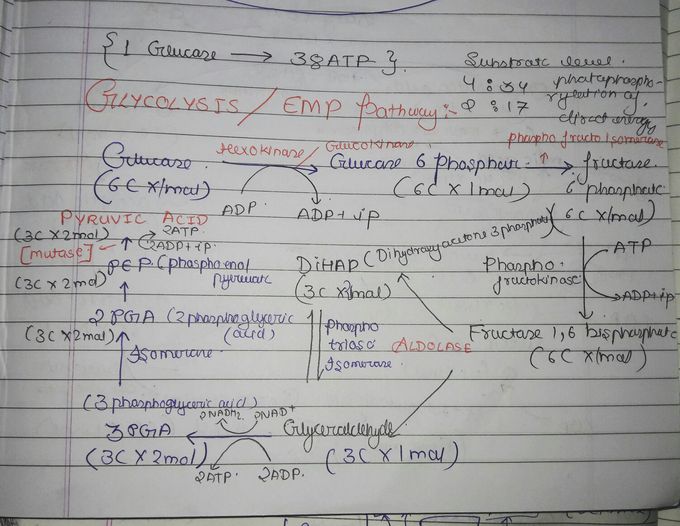 {1 Glucase → 38ATP}.
Substrate level.
4 : 34
8 : 17
phataphospho-
rylation of
direct energy
GLYCOLYSIS / EMP Pathway:-
phospho fructo Isomerase
Hexokinase / Glucokinase
Glucase → Glucase 6 phosphat. → fructase.
6 phosphate
(6C X 1mol)
ADP
ADP + ip
(6C X 1mol)
(6C X 1mol)
PYRUVIC ACID
(3C X 2mol)
2ATP.
2ADP+ip.
[mutase]
PEP (phosphoenol
pyruvate
(3C X 2mol)
DiHAP (Dihydroxyacetone 3 phosphate)
(3C X 2mol)
Phospho.
fructokinase
ATP
ADP+ip
2PGA (2 phosphoglyceric
(acid)
(3C X 2mol)
Isomerase
Phospho
triase
Isomerase
ALDOLASE
Fructase 1,6 bisphosphate
(6C X 1mol)
(3 phosphoglyceric acid)
2NADH2.
2NAD+
3PGA
Glyceraldehyde
(3C X 2mol)
(3C X 1mol)
2ATP.
2ADP.